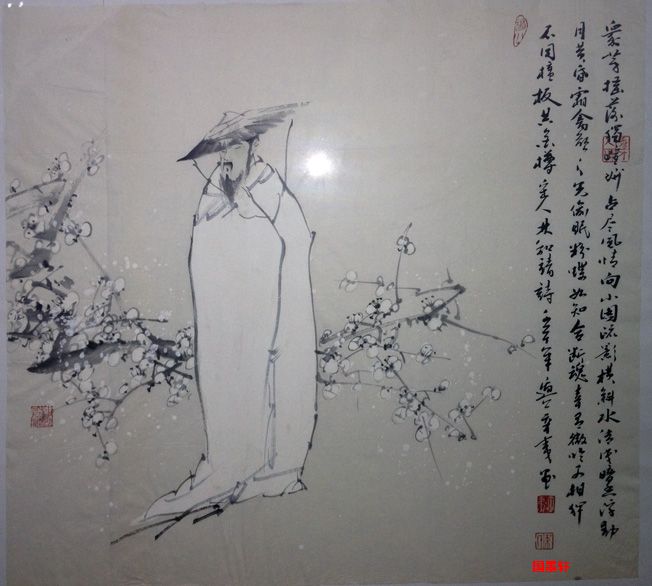 眾芳摇落獨暄妍占尽風情向小園疏影横斜水清淺暗香浮動
月黄昏霜禽欲下先偷眼粉蝶如知合断魂幸有微吟可相狎
不用檀板共金樽宋人林和靖詩
国墨轩